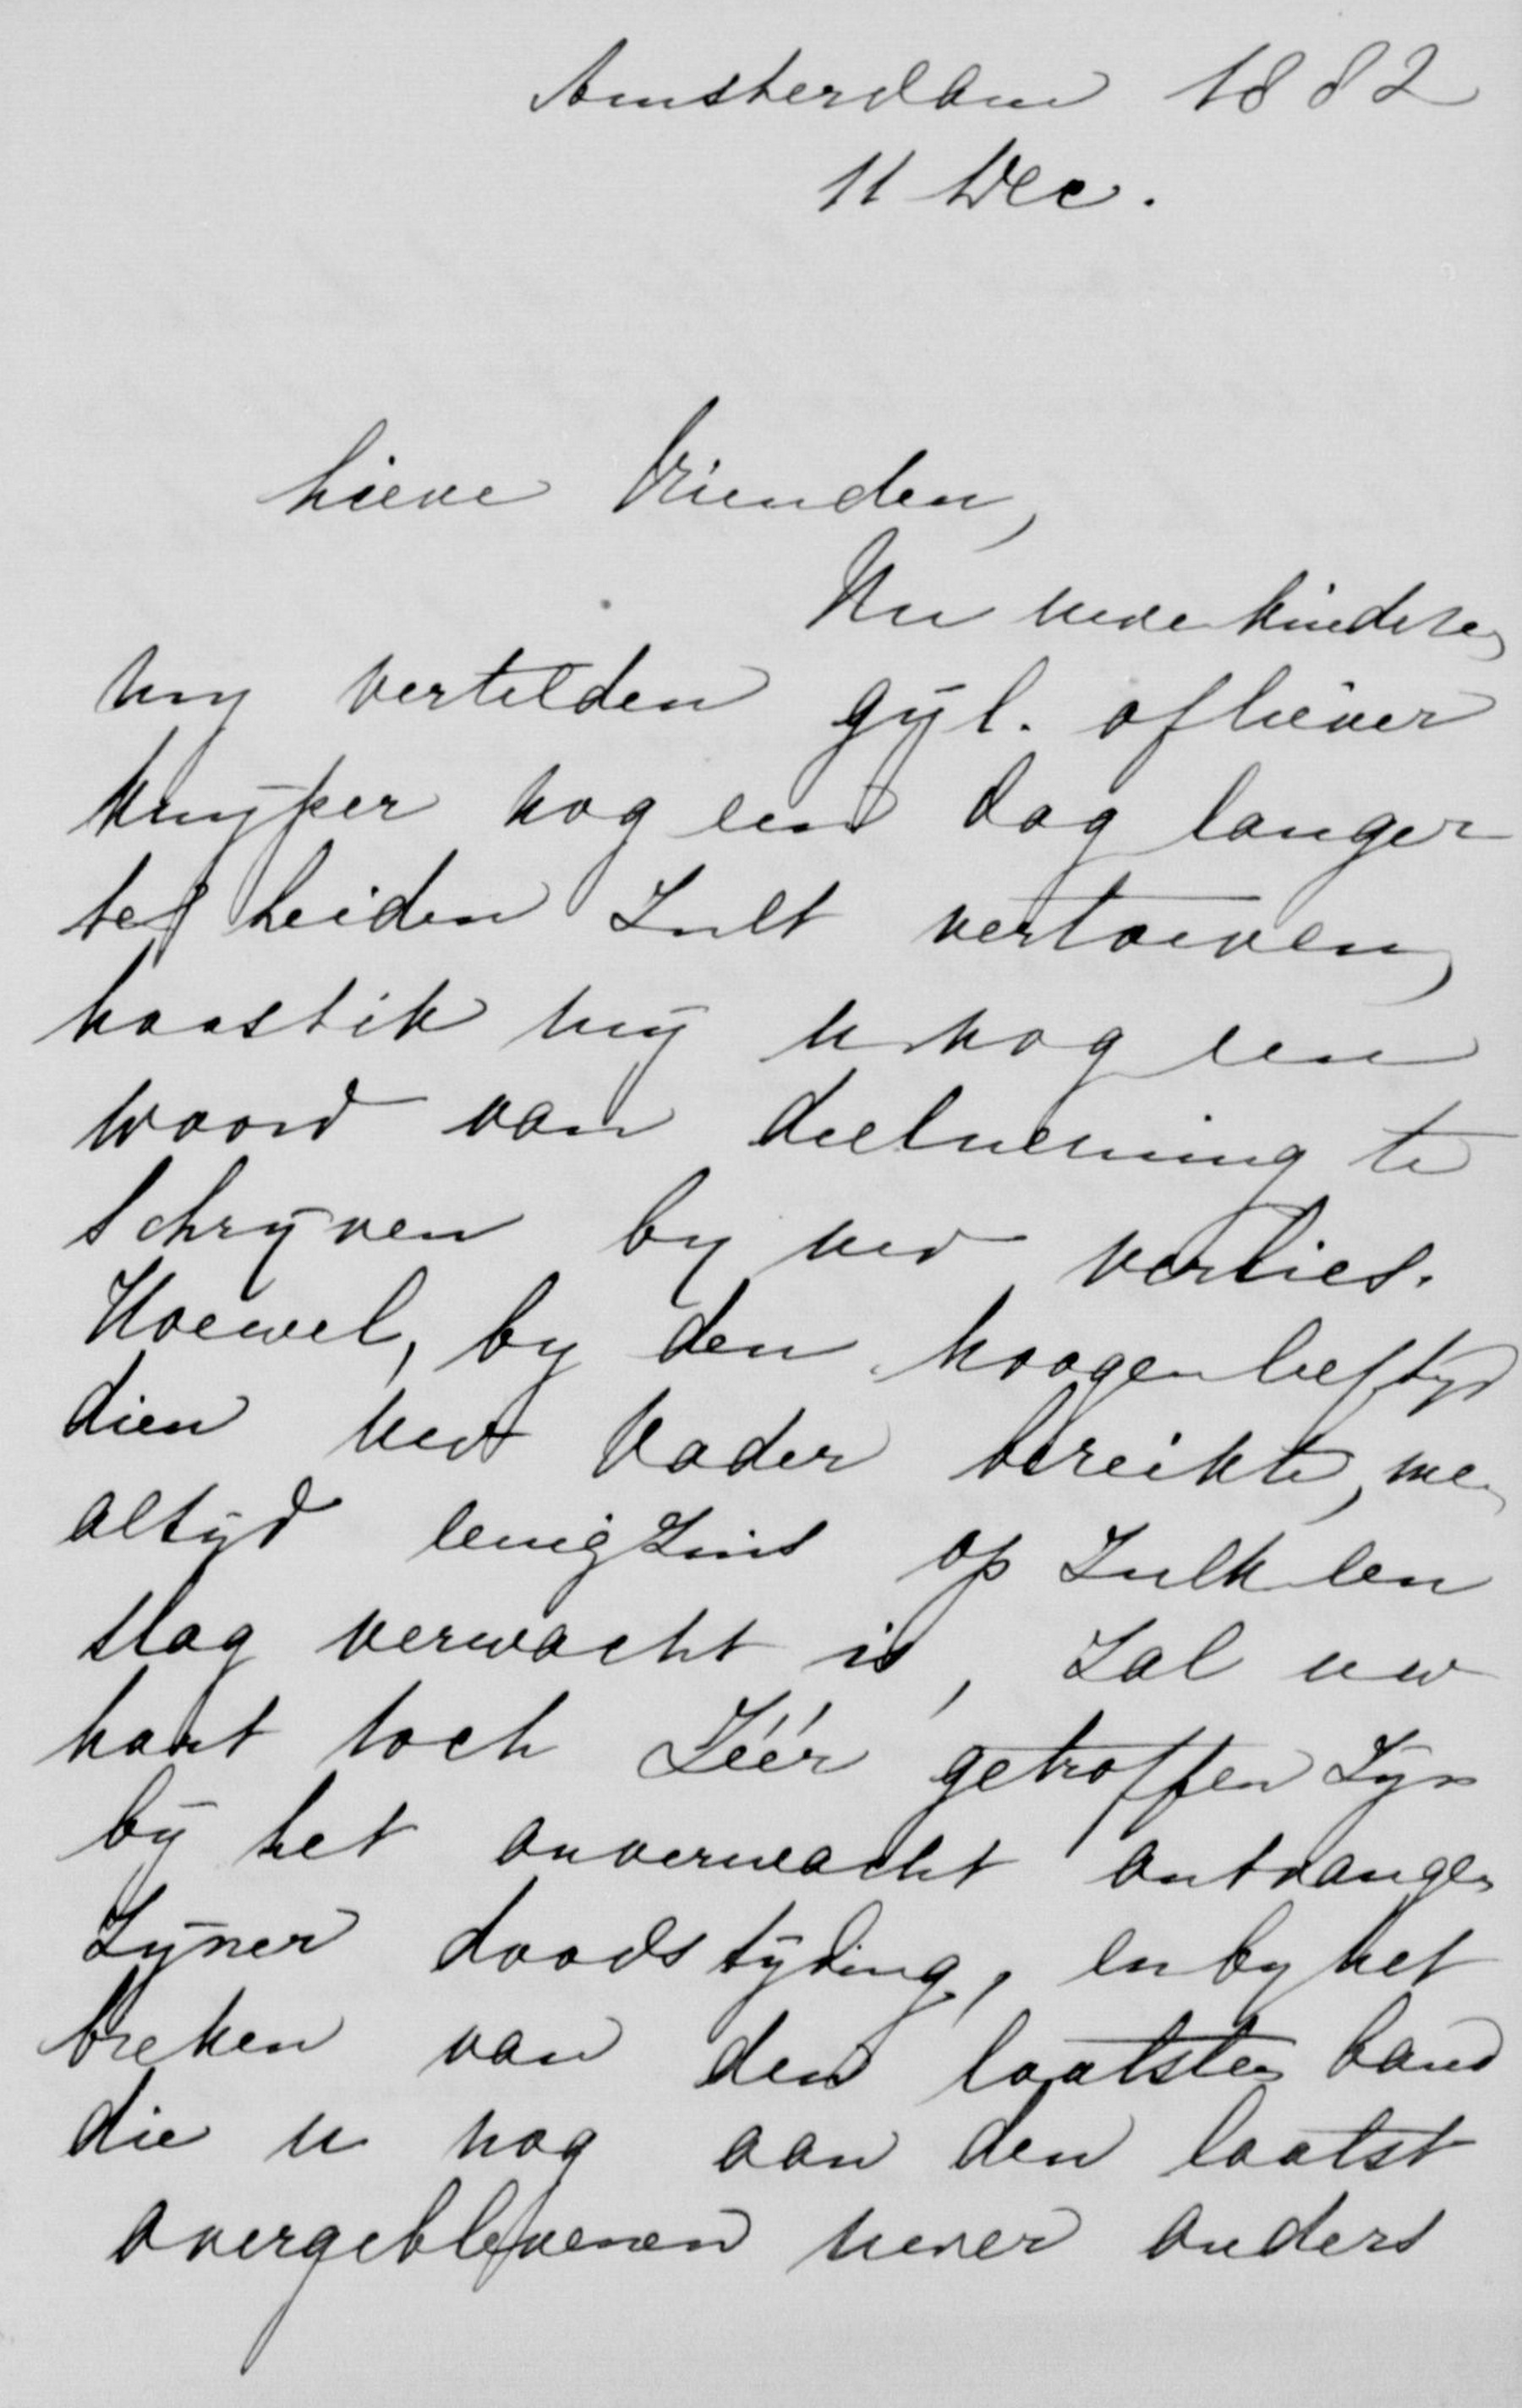 Amsterdam 1882
11 Dec.
Lieve Vrienden,
Nu uwe kinderen
my vertelden gijl. of liever
Kuyper nog een dag langer
te Leiden zult vertoeven,
haast ik mij u nog een
woord van deelneming te
schrijven by uw verlies.
Hoewel, by den hoogen leeftyd
dien uw Vader bereikte, men
altijd eenigzins op zulk een
slag verwacht is, zal uw
hart toch zéér getroffen zyn
bij het onverwacht ontvangen
zijner doodstijding, en by het
breken van den laatsten band
die u nog aan den laatst
overgeblevenen uwer ouders